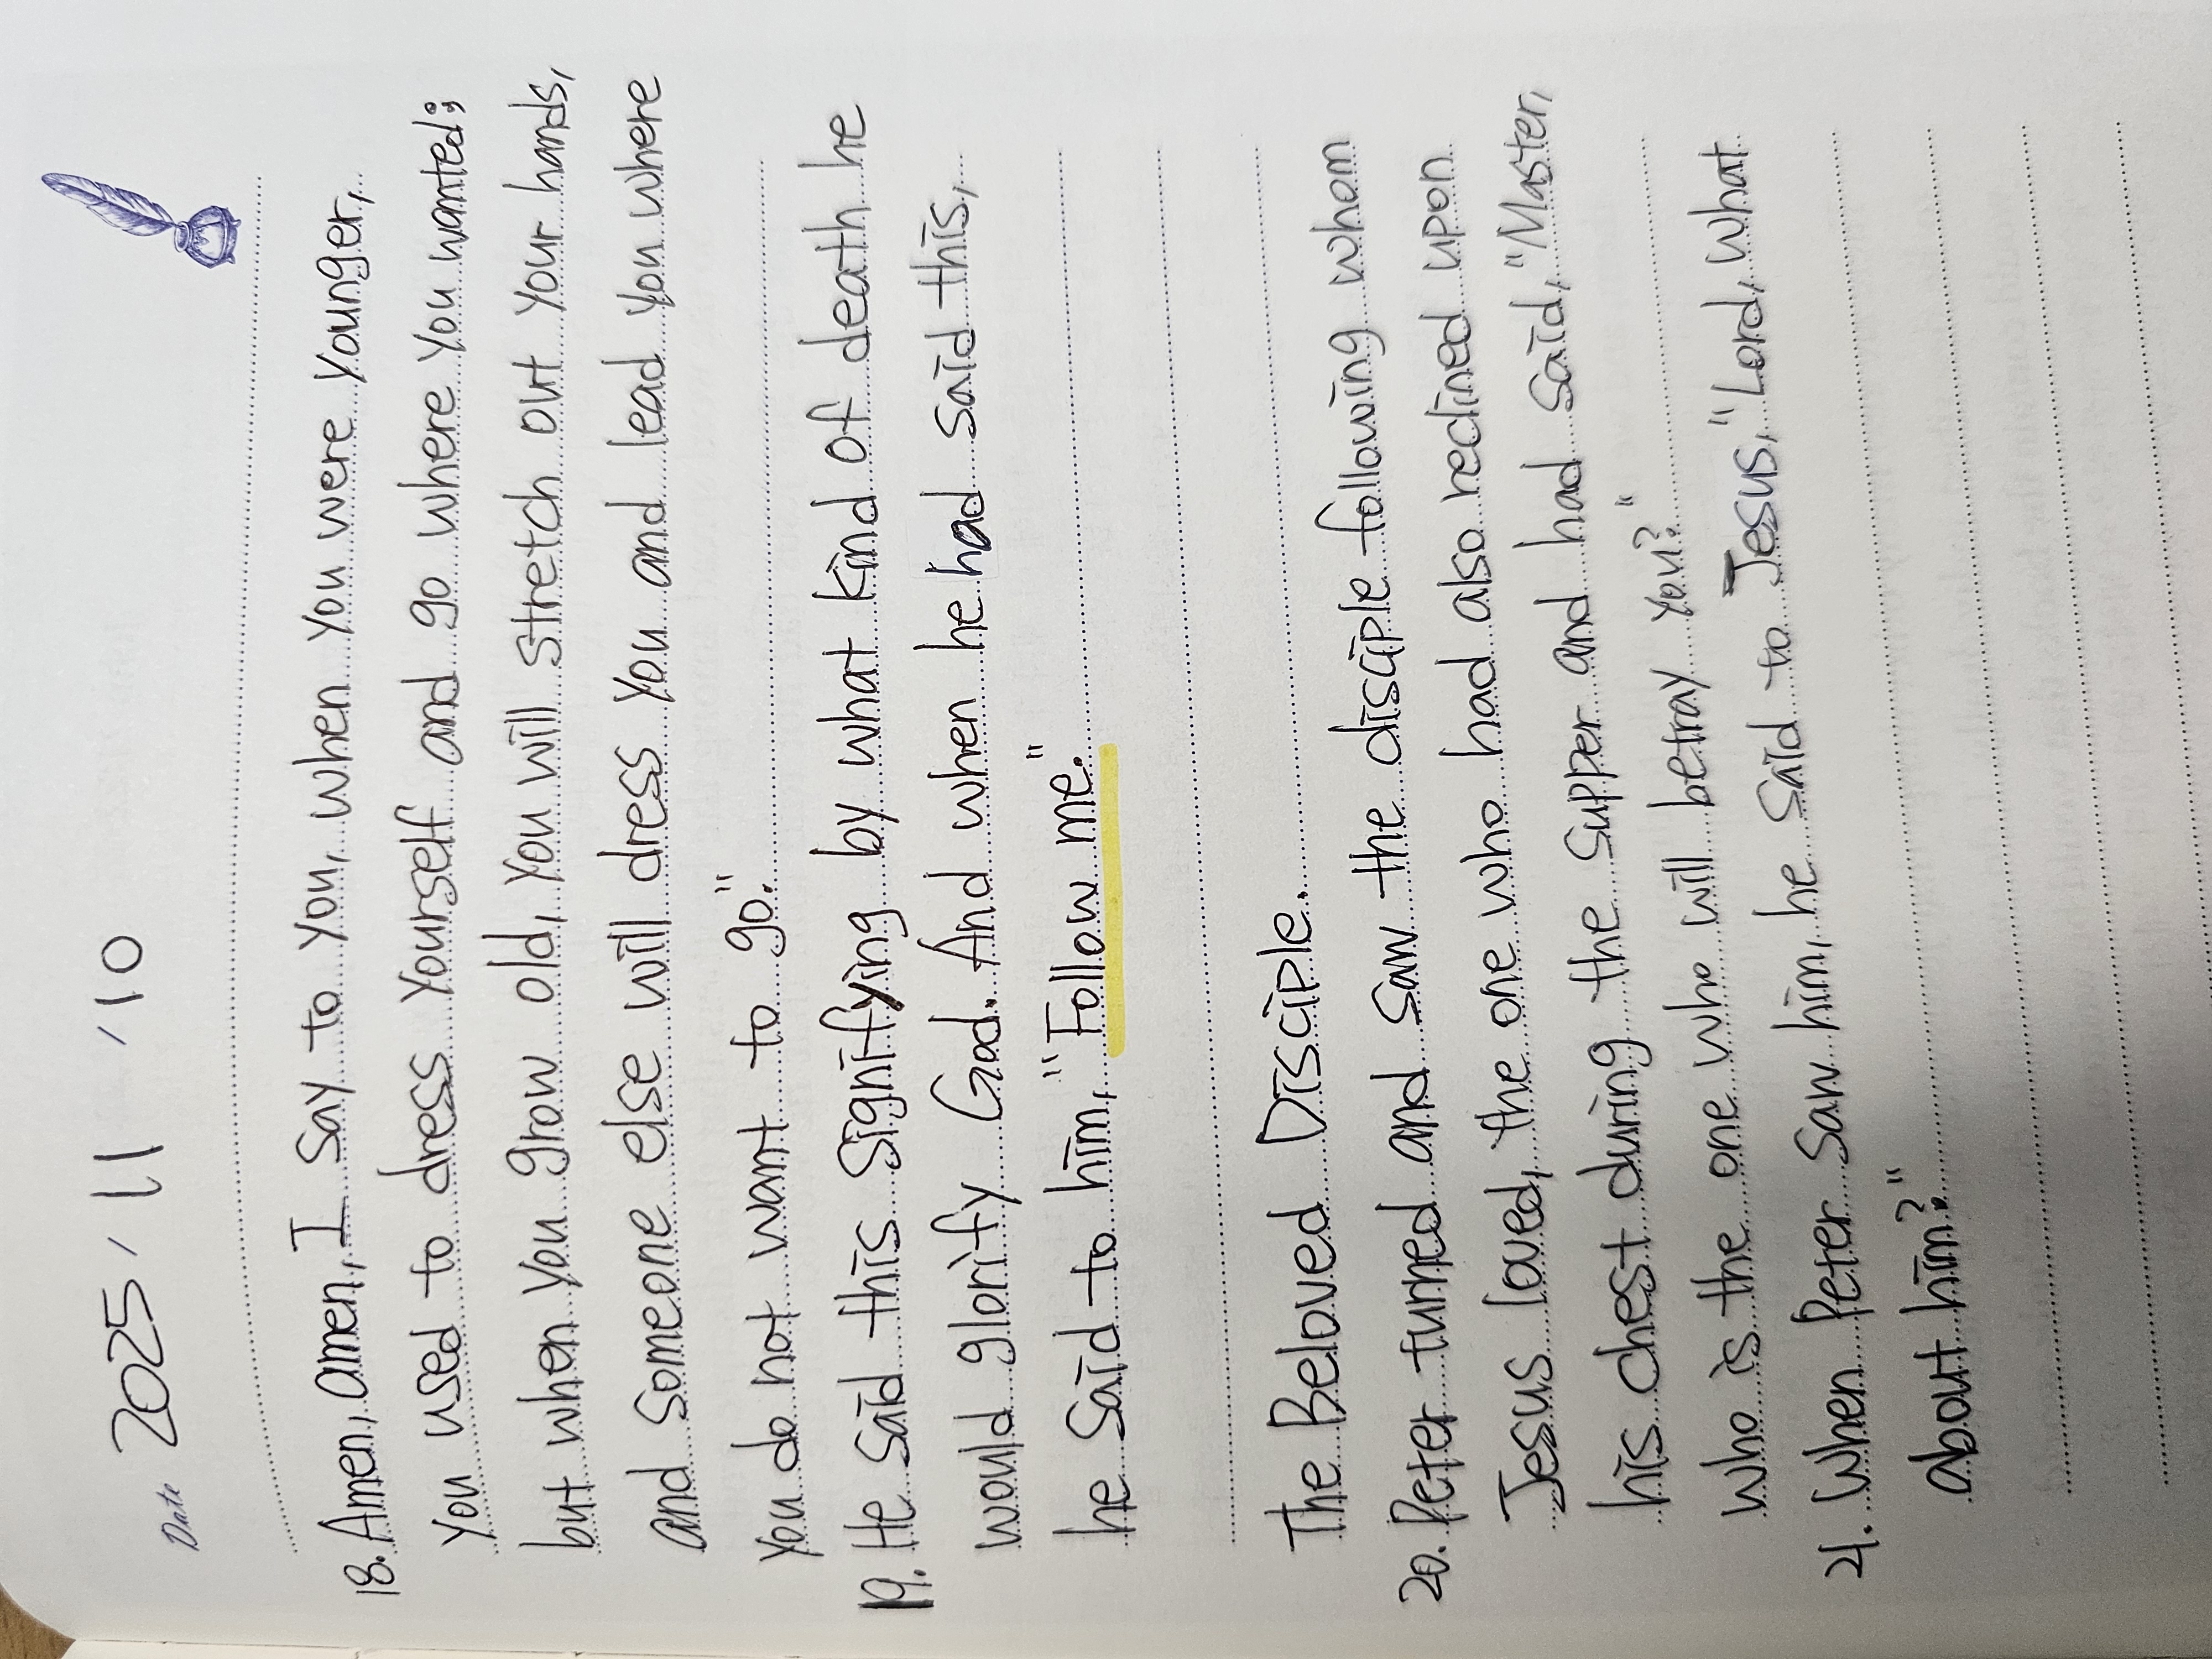 Date 2025 / 11 / 10
18. Amen, amen, I say to you, when you were younger,
you used to dress yourself and go where you wanted;
but when you grow old, you will stretch out your hands,
and someone else will dress you and lead you where
you do not want to go."
19. He said this signifying by what kind of death he
would glorify God. And when he had said this,
he said to him, "Follow me."
The Beloved Disciple.
20. Peter turned and saw the disciple following whom
Jesus loved, the one who had also reclined upon
his chest during the supper and had said, "Master,
who is the one who will betray you?"
21. When Peter saw him, he said to Jesus, "Lord, what
about him?"